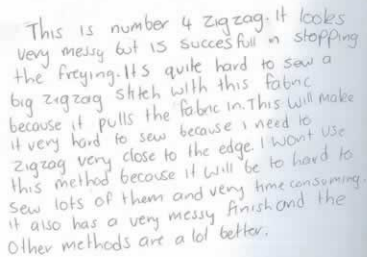 This is number 4 zigzag. It lookes
very messy but is succesfull n stopping
the freying. Its quite hard to sew a
big zigzag stitch with this fabric
because it pulls the fabric in. This will make
it very hard to sew because I need to
zigzag very close to the edge. I wont use
this method because it will be to hard to
sew lots of them and very time consuming.
it also has a very messy finish and the
other methods are a lot better.